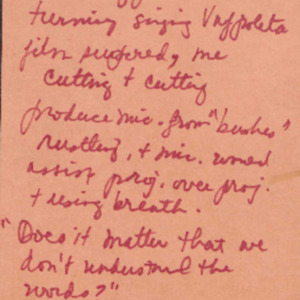 turning singing
film suffered, me
cutting + cutting
produce mic. from "bushes"
rustling, + mic. wound
assist proj. over proj.
+ using breath.
"Does it matter that we
don't understand the
words?"